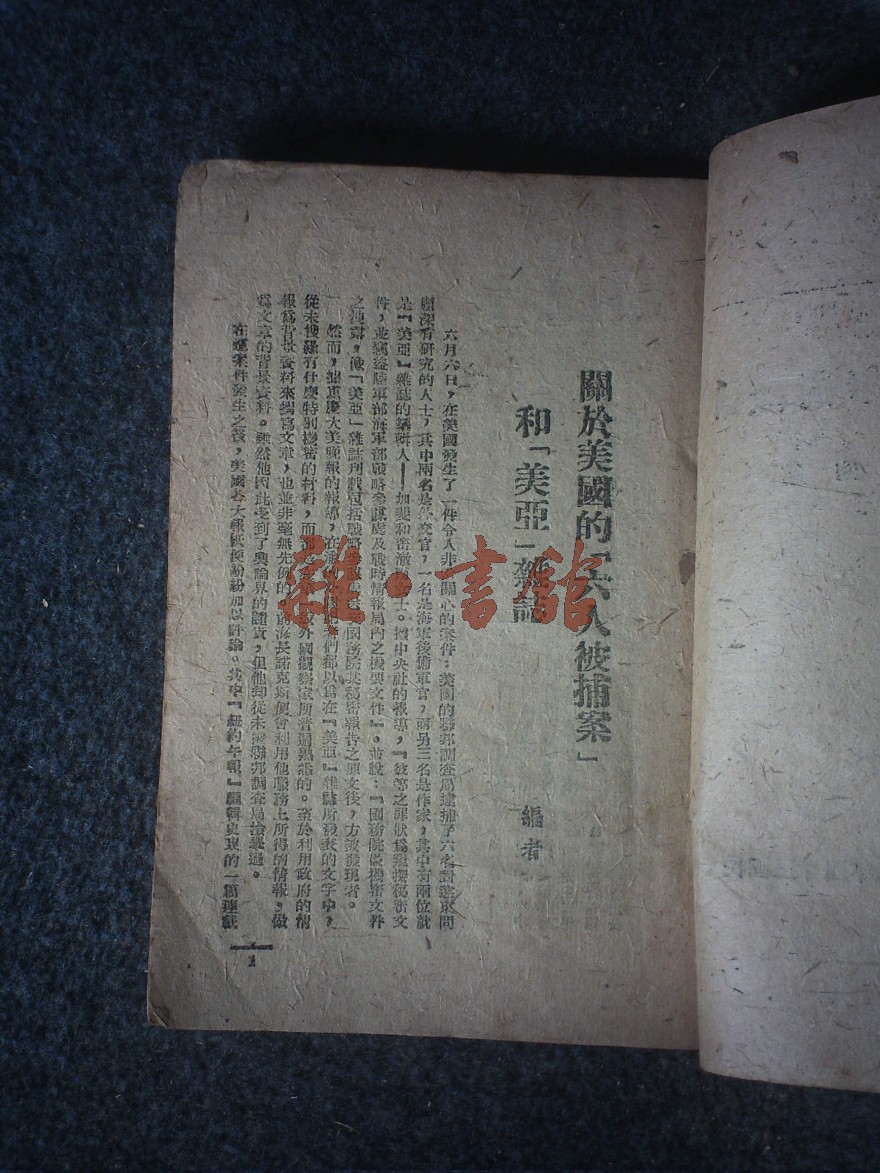 關於美國的「六人被捕案」
和「美亞」雜誌
編者
六月六日，在美國發生了一件令人非常關心的案件：美國的聯邦調查局逮捕了六名對遠東問
題深有研究的人士，其中兩名是外交官，一名是海軍後備軍官，而另三名是作家，其中有兩位就
是『美亞』雜誌的編輯人——加斐和密澈爾女士。據中央社的報導，『彼等之罪狀為錄擇秘密文
件，並竊盜陸軍部海軍部戰略參謀處及戰時情報局內之機要文件』。並說：『國務院最機密文件
之洩露，係「美亞」雜誌刊載包括戰略 國務院某秘密報告之原文後，方被發現者。
然而，據重慶大美晚報的報導，在 們都以為在『美亞』雜誌所發表的文字中，
從未搜羅有什麼特別機密的材料，而 外國觀察家所普遍熟悉的。至於利用政府的情
報為背景資料來撰寫文章，也並非毫無先例的。前海長諾克斯便曾利用他服務上所得的情報，做
為文章的背景資料。雖然他因此受到了輿論界的譴責，但他卻從未被聯邦調查局檢舉過。
在這案件發生之後，美國各大報紙便紛紛加以評論。其中『紐約午報』編輯史東的一篇連載
1
雜·書館